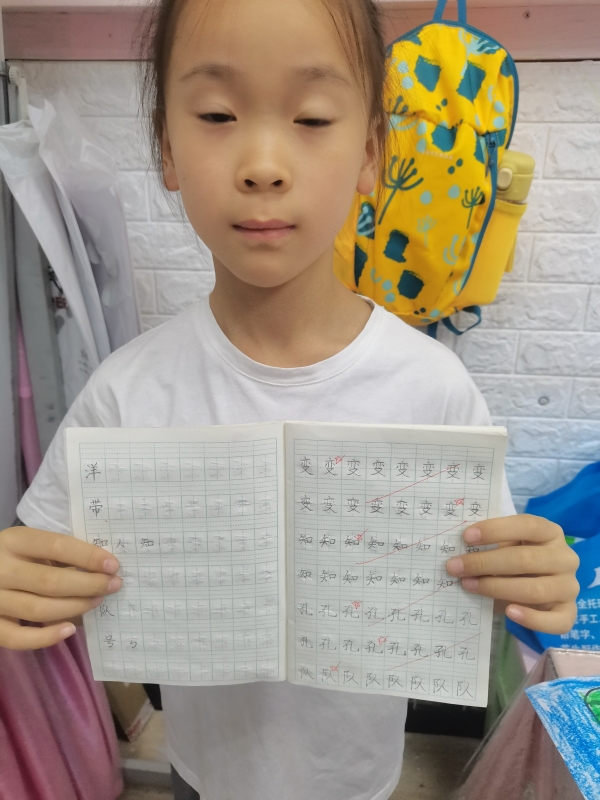 洋
带
知 人 知
队
号
变 变 变 变 变 变 变 变
变 变 变 变 变 变 变 变
知 知 知 知 知 知 知 知
知 知 知 知 知 知 知
孔 孔 孔 孔 孔 孔 孔 孔
孔 孔 孔 孔 孔 孔 孔 孔
队 队 队 队 队 队 队 队
全托
手工
铅笔字